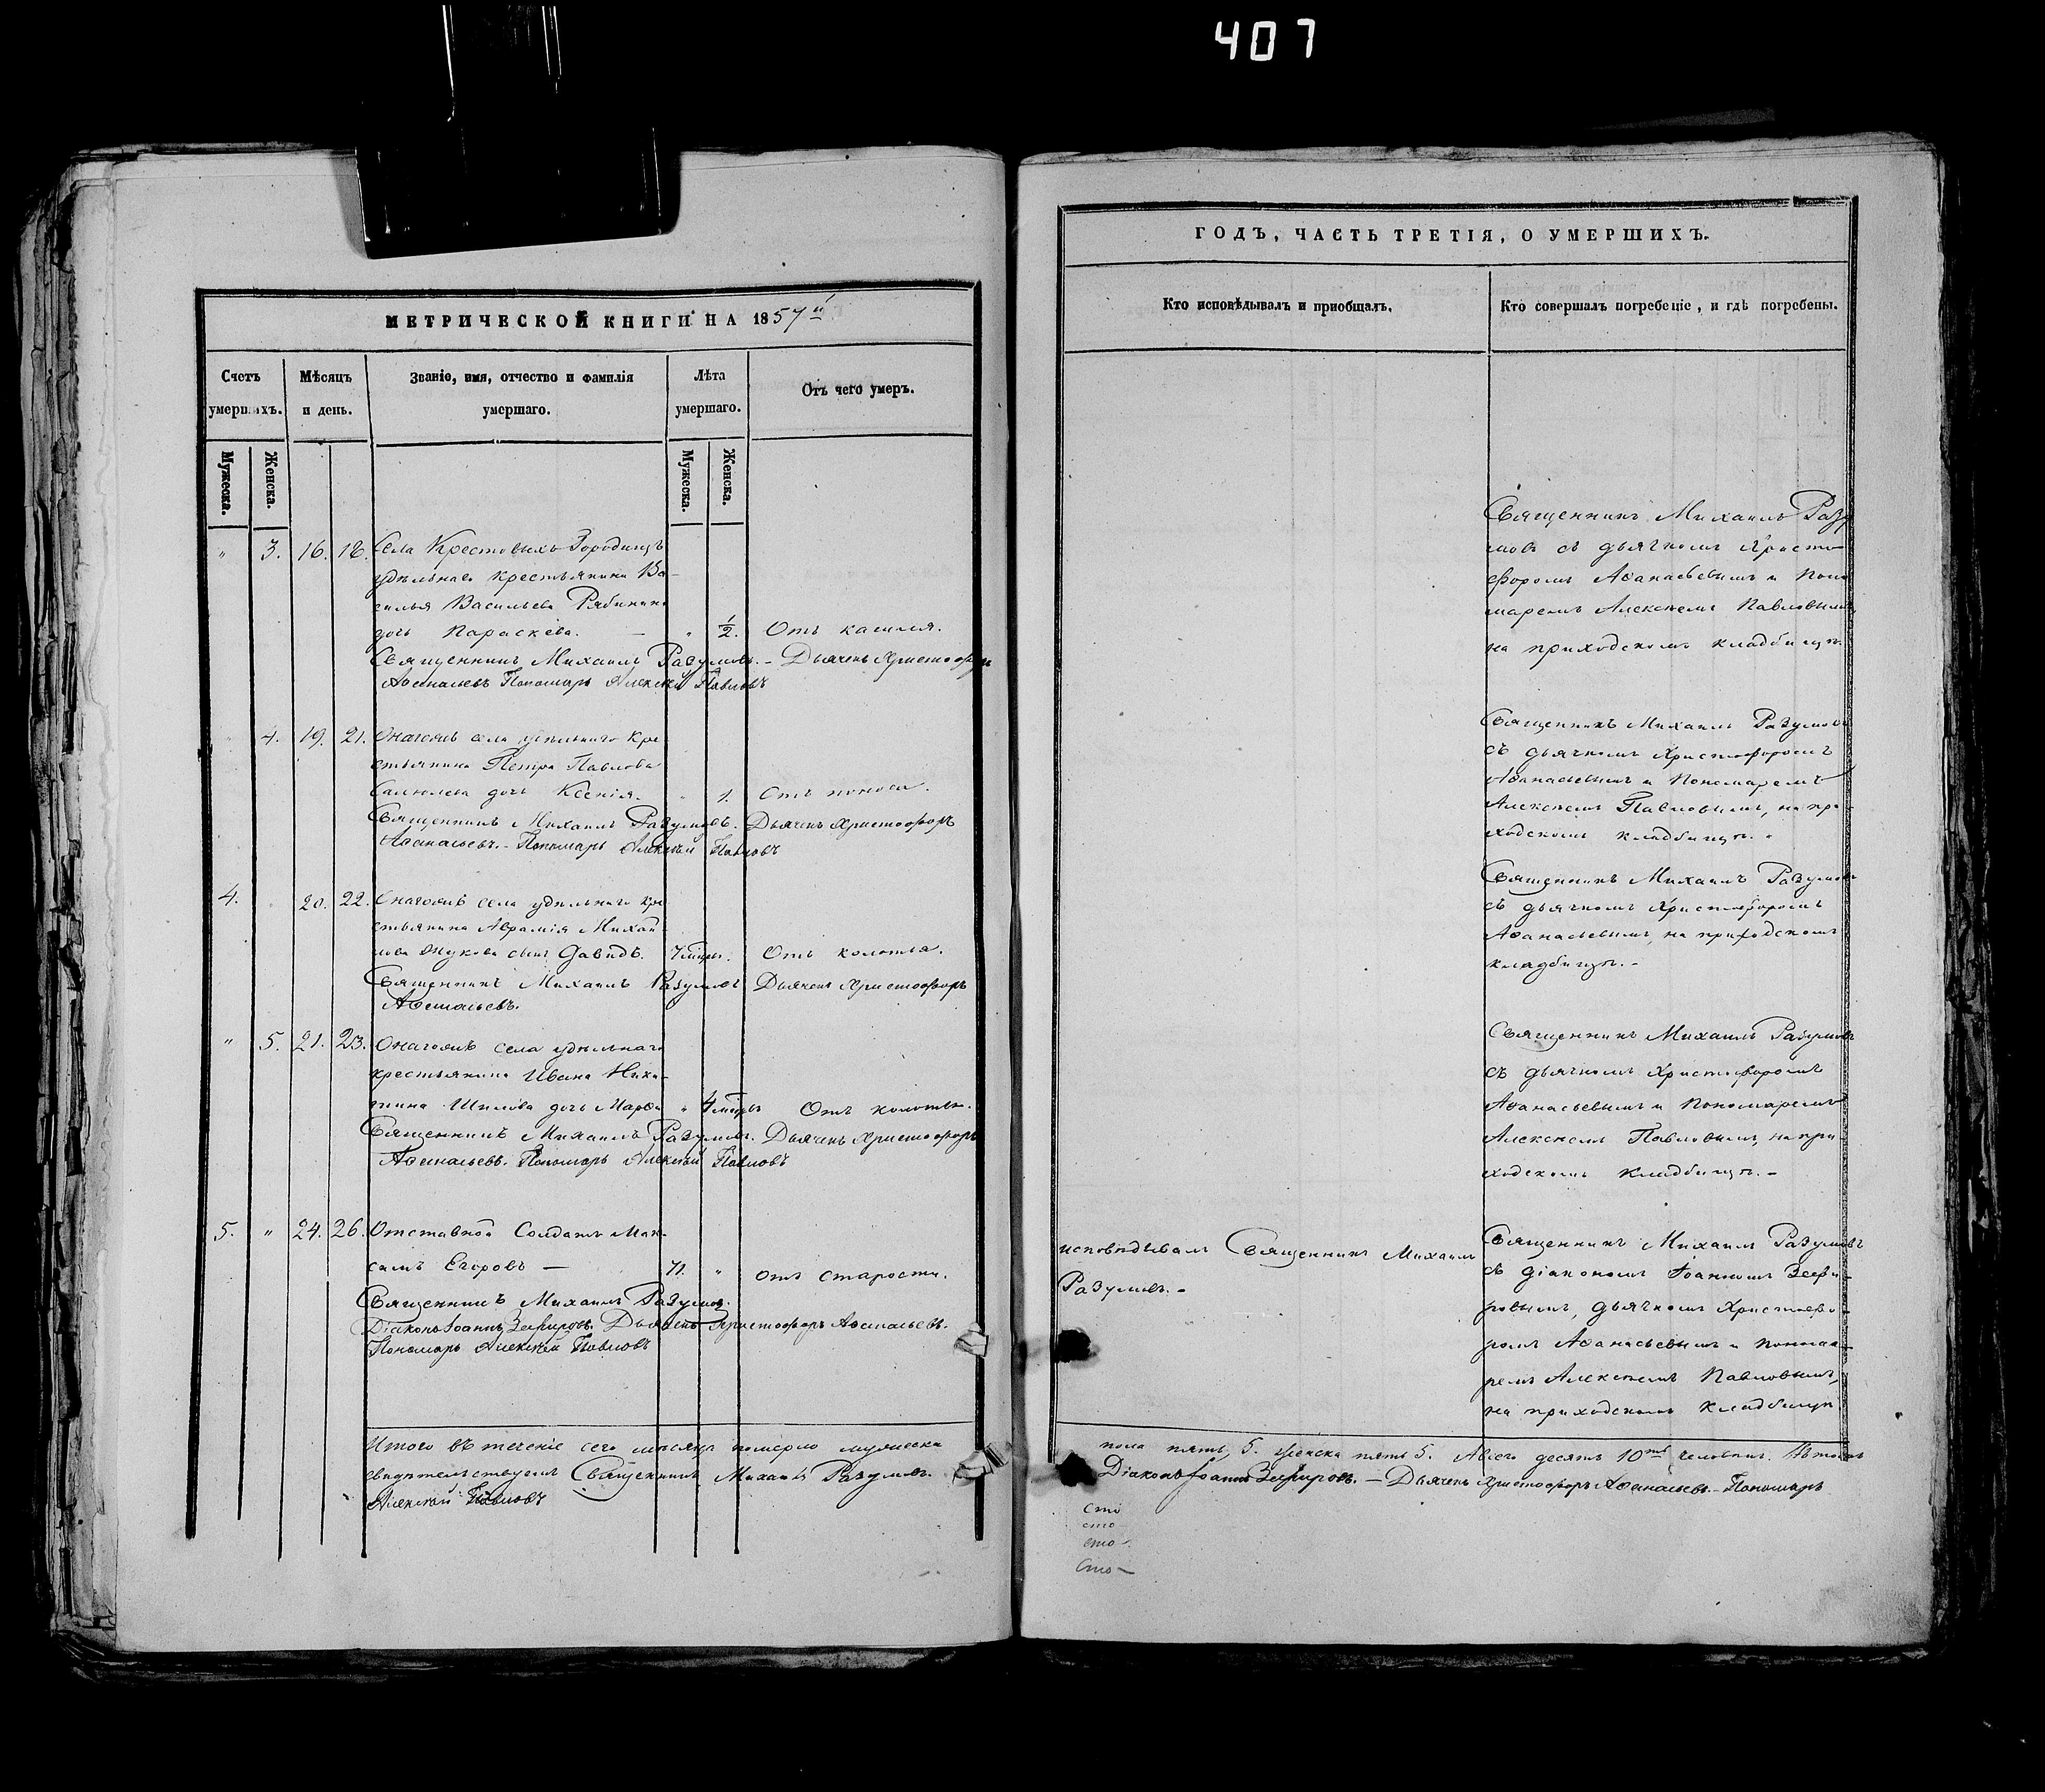 407
МЕТРИЧЕСКОЙ КНИГИ НА 1857й
Счетъ умершихъ.
Мѣсяцъ и день.
Званіе, имя, отчество и фамилія умершаго.
Лѣта умершаго.
Отъ чего умеръ.
Мужеска. Женска.
Мужеска. Женска.
" 3. 16. 18. Села Крестовыхъ Городищъ
удѣльнаго крестьянина Ва-
силья Васильева Рябинина
дочь Параскева. — " 1/2. Отъ кашля.
Священникъ Михаилъ Разумовъ. – Дьячекъ Христофоръ
Аѳанасьевъ Пономарь Алексѣй Павловъ
" 4. 19. 21. Онагожъ села удѣльнаго кре
стьянина Петра Павлова
дочь Ксенія. " 1. Отъ поноса.
Священникъ Михаилъ Разумовъ. Дьячекъ Христофоръ
Аѳанасьевъ. – Пономарь Алексѣй Павловъ
4. 20. 22. Онагожъ села удѣльнаго кре
стьянина Аврамія Михай
лова Жукова сынъ Давидъ. Отъ колотья.
Священникъ Михаилъ Разумовъ Дьячекъ Христофоръ
Аѳанасьевъ.
" 5. 21. 23. Онагожъ села удѣльнаго
крестьянина Ивана Ники-
тина Шилова дочь Марѳа " Отъ колотья.
Священникъ Михаилъ Разумовъ. Дьячекъ Христофоръ
Аѳанасьевъ. Пономарь Алексѣй Павловъ
5. " 24. 26. Отставной Солдатъ Мак-
симъ Егоровъ — 71. " отъ старости.
Священникъ Михаилъ Разумовъ.
Діаконъ Іоаннъ Зефировъ. Дьячекъ Христофоръ Аѳанасьевъ.
Пономарь Алексѣй Павловъ
Итого въ теченіе сего мѣсяца померло мужеска
свидѣтельствуемъ Священникъ Михаилъ Разумовъ.
Алексѣй Павловъ
ГОДЪ, ЧАСТЬ ТРЕТІЯ, О УМЕРШИХЪ.
Кто исповѣдывалъ и пріобщалъ.
Кто совершалъ погребеніе, и гдѣ погребены.
Священникъ Михаилъ Разу
мовъ съ дьячкомъ Христо-
форомъ Аѳанасьевымъ и Поно
маремъ Алексѣемъ Павловымъ,
на приходскомъ кладбищѣ.
Священникъ Михаилъ Разумовъ
съ дьячкомъ Христофоромъ
Аѳанасьевымъ и Пономаремъ
Алексѣемъ Павловымъ, на при-
ходскомъ кладбищѣ.
Священникъ Михаилъ Разумовъ
съ дьячкомъ Христофоромъ
Аѳанасьевымъ, на приходскомъ
кладбищѣ. –
Священникъ Михаилъ Разумовъ
съ дьячкомъ Христофоромъ
Аѳанасьевымъ и Пономаремъ
Алексѣемъ Павловымъ, на при-
ходскомъ кладбищѣ. –
исповѣдывалъ Священникъ Михаилъ
Разумовъ. –
Священникъ Михаилъ Разумовъ
съ діакономъ Іоанномъ Зефи-
ровымъ, дьячкомъ Христофо-
ромъ Аѳанасьевымъ и понома-
ремъ Алексѣемъ Павловымъ,
на приходскомъ кладбищѣ
пола пять, 5. женска пять 5. Всего десять 10ть человѣкъ. Въ томъ
Діаконъ Іоаннъ Зефировъ. – Дьячекъ Христофоръ Аѳанасьевъ. – Пономарь
Сто
сто
сто
Сто –